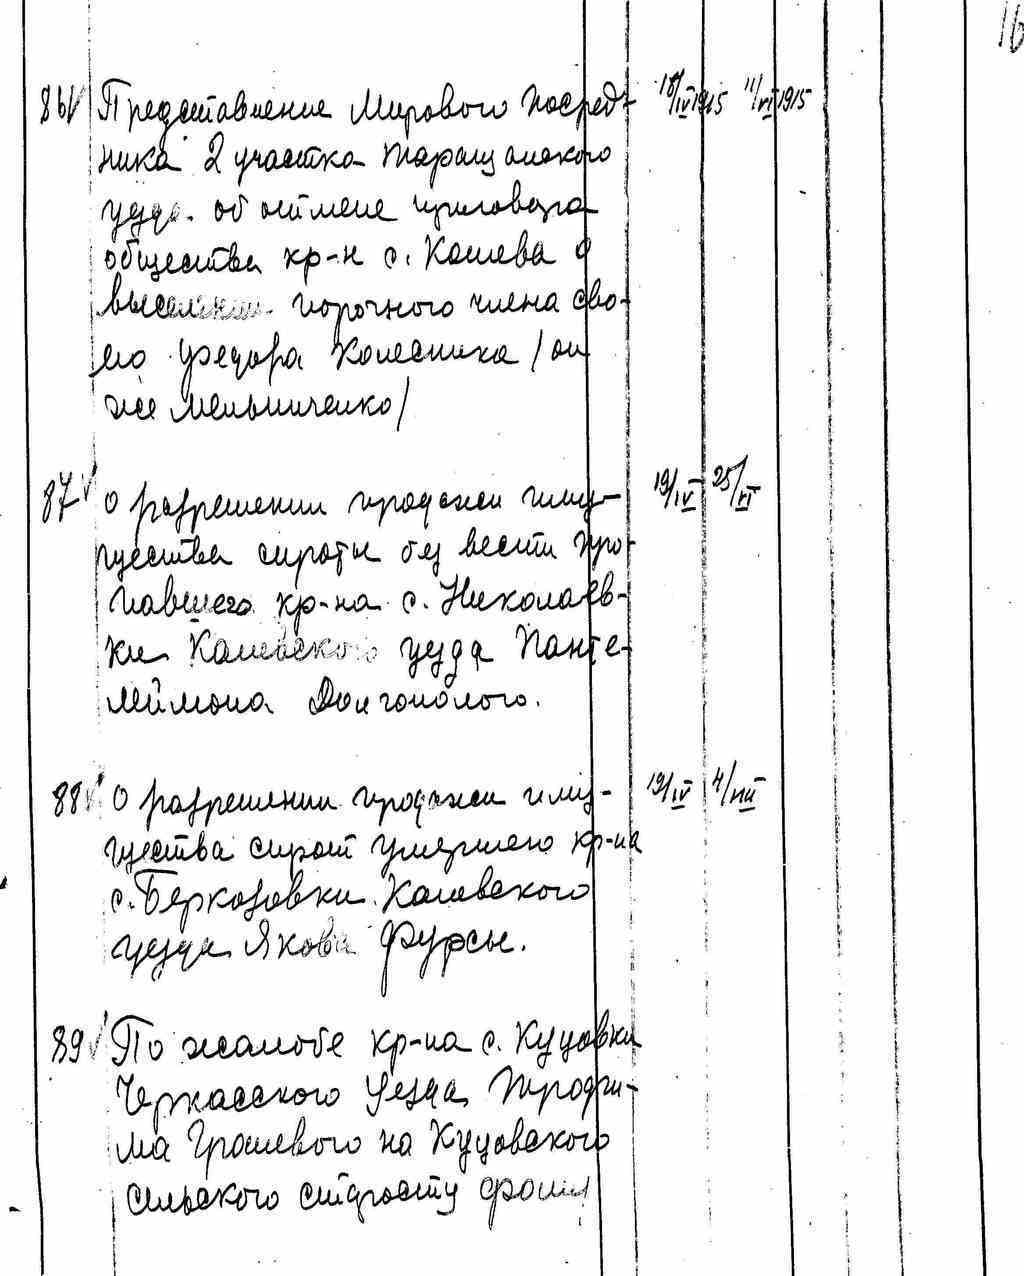 16
86 Представление Мирового посред- 18/IV 1915 11/VI 1915
ника 2 участка Таращанского
уезда об отмене приговора
общества кр-н с. Кошева о
выселении порочного члена сво-
его Федора Колесника /он
же Мельниченко/
87 О разрешении продажи иму- 19/IV 25/VI
щества сироты без вести про-
павшего кр-на с. Николаев-
ки Каневского уезда Панте-
леймона Долгополого.
88 О разрешении продажи иму- 19/IV 4/VIII
щества сирот умершего кр-на
с. Беркозовки Каневского
уезда Якова Фурсы.
89 По жалобе кр-на с. Куцовки
Черкасского уезда Трофи-
ма Грошевого на Куцовского
сельского старосту